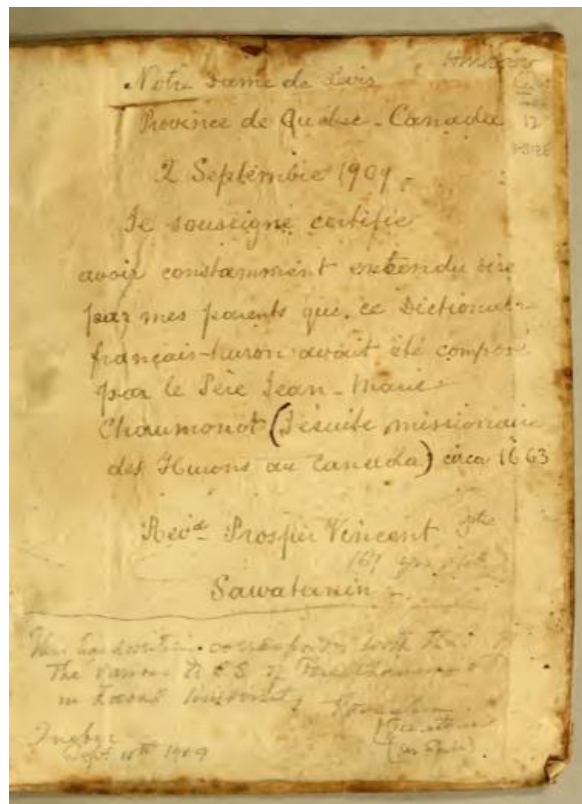 Notre Dame de Levis
Province de Québec - Canada
12
2 Septembre 1909.
Je sousigné certifie
avoir constamment entendu dire
par mes parents que ce Dictionat-
français-huron avait été composé
par le Père Jean-Marie
Chaumonot (Jésuite missionaire
des Hurons au Canada) circa 1663
Revd Prosper Vincent ptre
(67 yrs old)
Sawatanin
This handwriting corresponds with the
The various of Père
in Laval University
Quebec
Sept 10th 1909